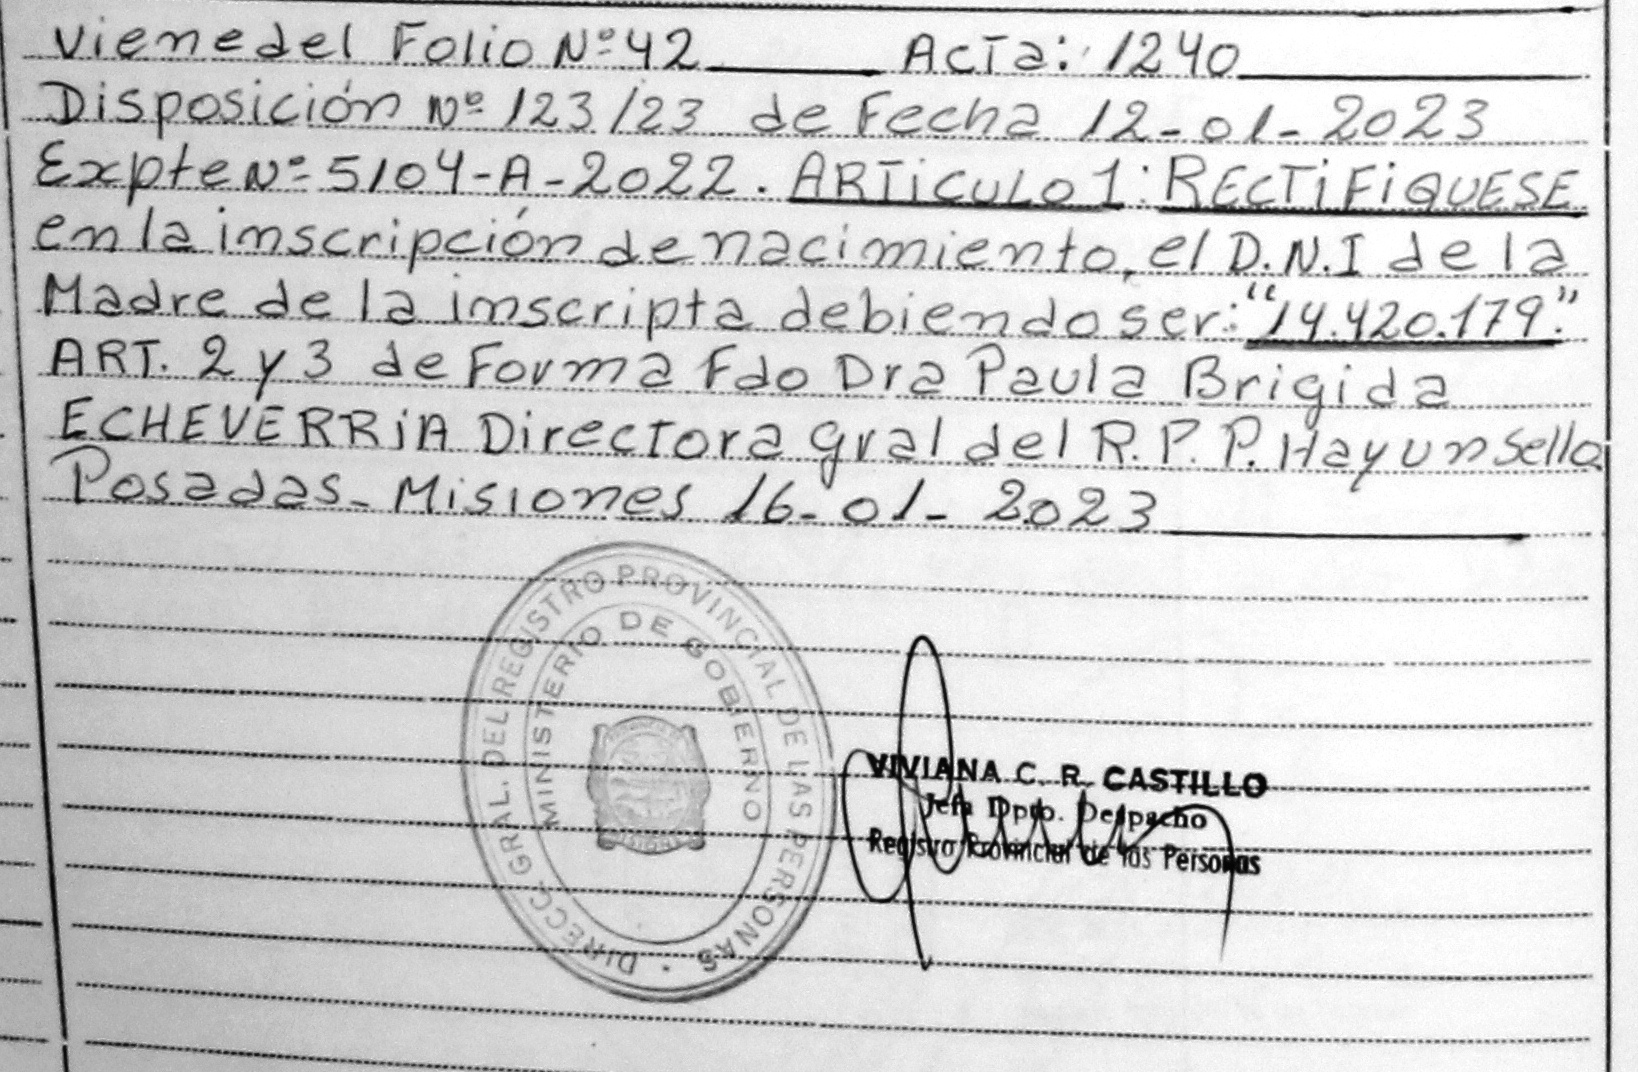 Viene del Folio Nº 42 Acta: 1240
Disposición Nº 123/23 de Fecha 12-01-2023
Expte Nº 5104-A-2022. ARTICULO 1: RECTIFIQUESE
en la inscripción de nacimiento, el D.N.I de la
Madre de la inscripta debiendo ser: "14.420.179".
ART. 2 y 3 de Forma Fdo Dra Paula Brigida
ECHEVERRIA Directora gral del R.P.P. Hay un Sello
Posadas - Misiones 16-01-2023
DIRECC. GRAL. DEL REGISTRO PROVINCIAL DE LAS PERSONAS
MINISTERIO DE GOBIERNO
MISIONES
VIVIANA C. R. CASTILLO
Jefa Dpto. Despacho
Registro Provincial de las Personas